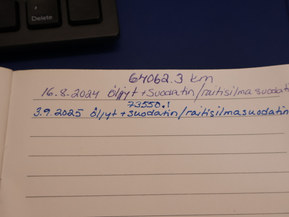 Delete
64062.3 km
16.8.2024 Öljyt + Suodatin/raitisilmasuodatin
73550.1
3.9.2025 Öljyt + suodatin/raitisilmasuodatin